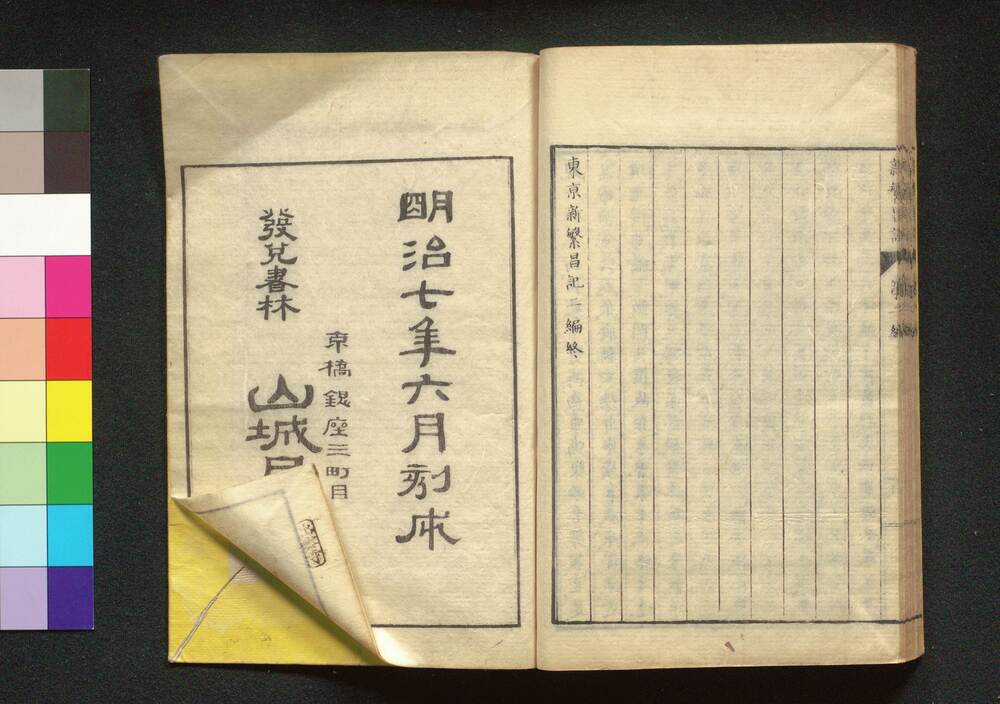 東京新繁昌記二編終
明治七年六月刻成
京橋銀座三町目
發兌書林
山城屋